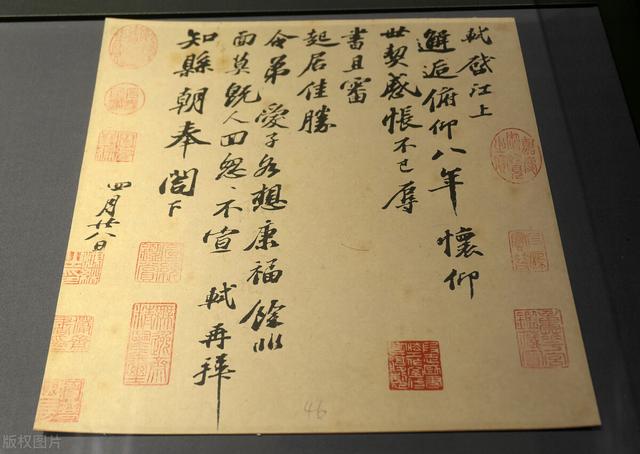 軾啓江上
邂逅俯仰八年 懷仰
世契感悵不已辱
書且審
起居佳勝
令弟 愛子各想康福餘非
面莫既人回忽〻不宣 軾再拜
知縣朝奉閣下
四月廿八日
46
版权图片